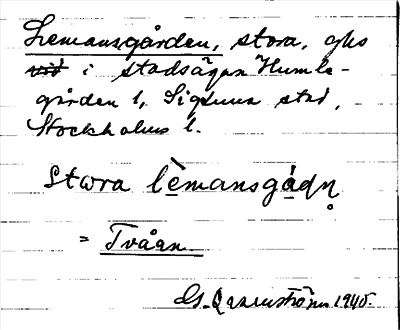 Lemansgården, stora, gks
i stadsägan Humle-
gården 1, Sigtuna stad,
Stockholms l.
Stωra lèmansgádṇ
= Tvåan
G. 1940.